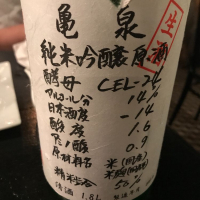 亀泉
生
純米吟醸原酒
酵母 CEL-24
アルコール分 14%
日本酒度 -14
酸度 1.6
アミノ酸 0.9
原材料名 米(国産)
米麹(国産米)
精米歩合 50%
清酒 1.8L